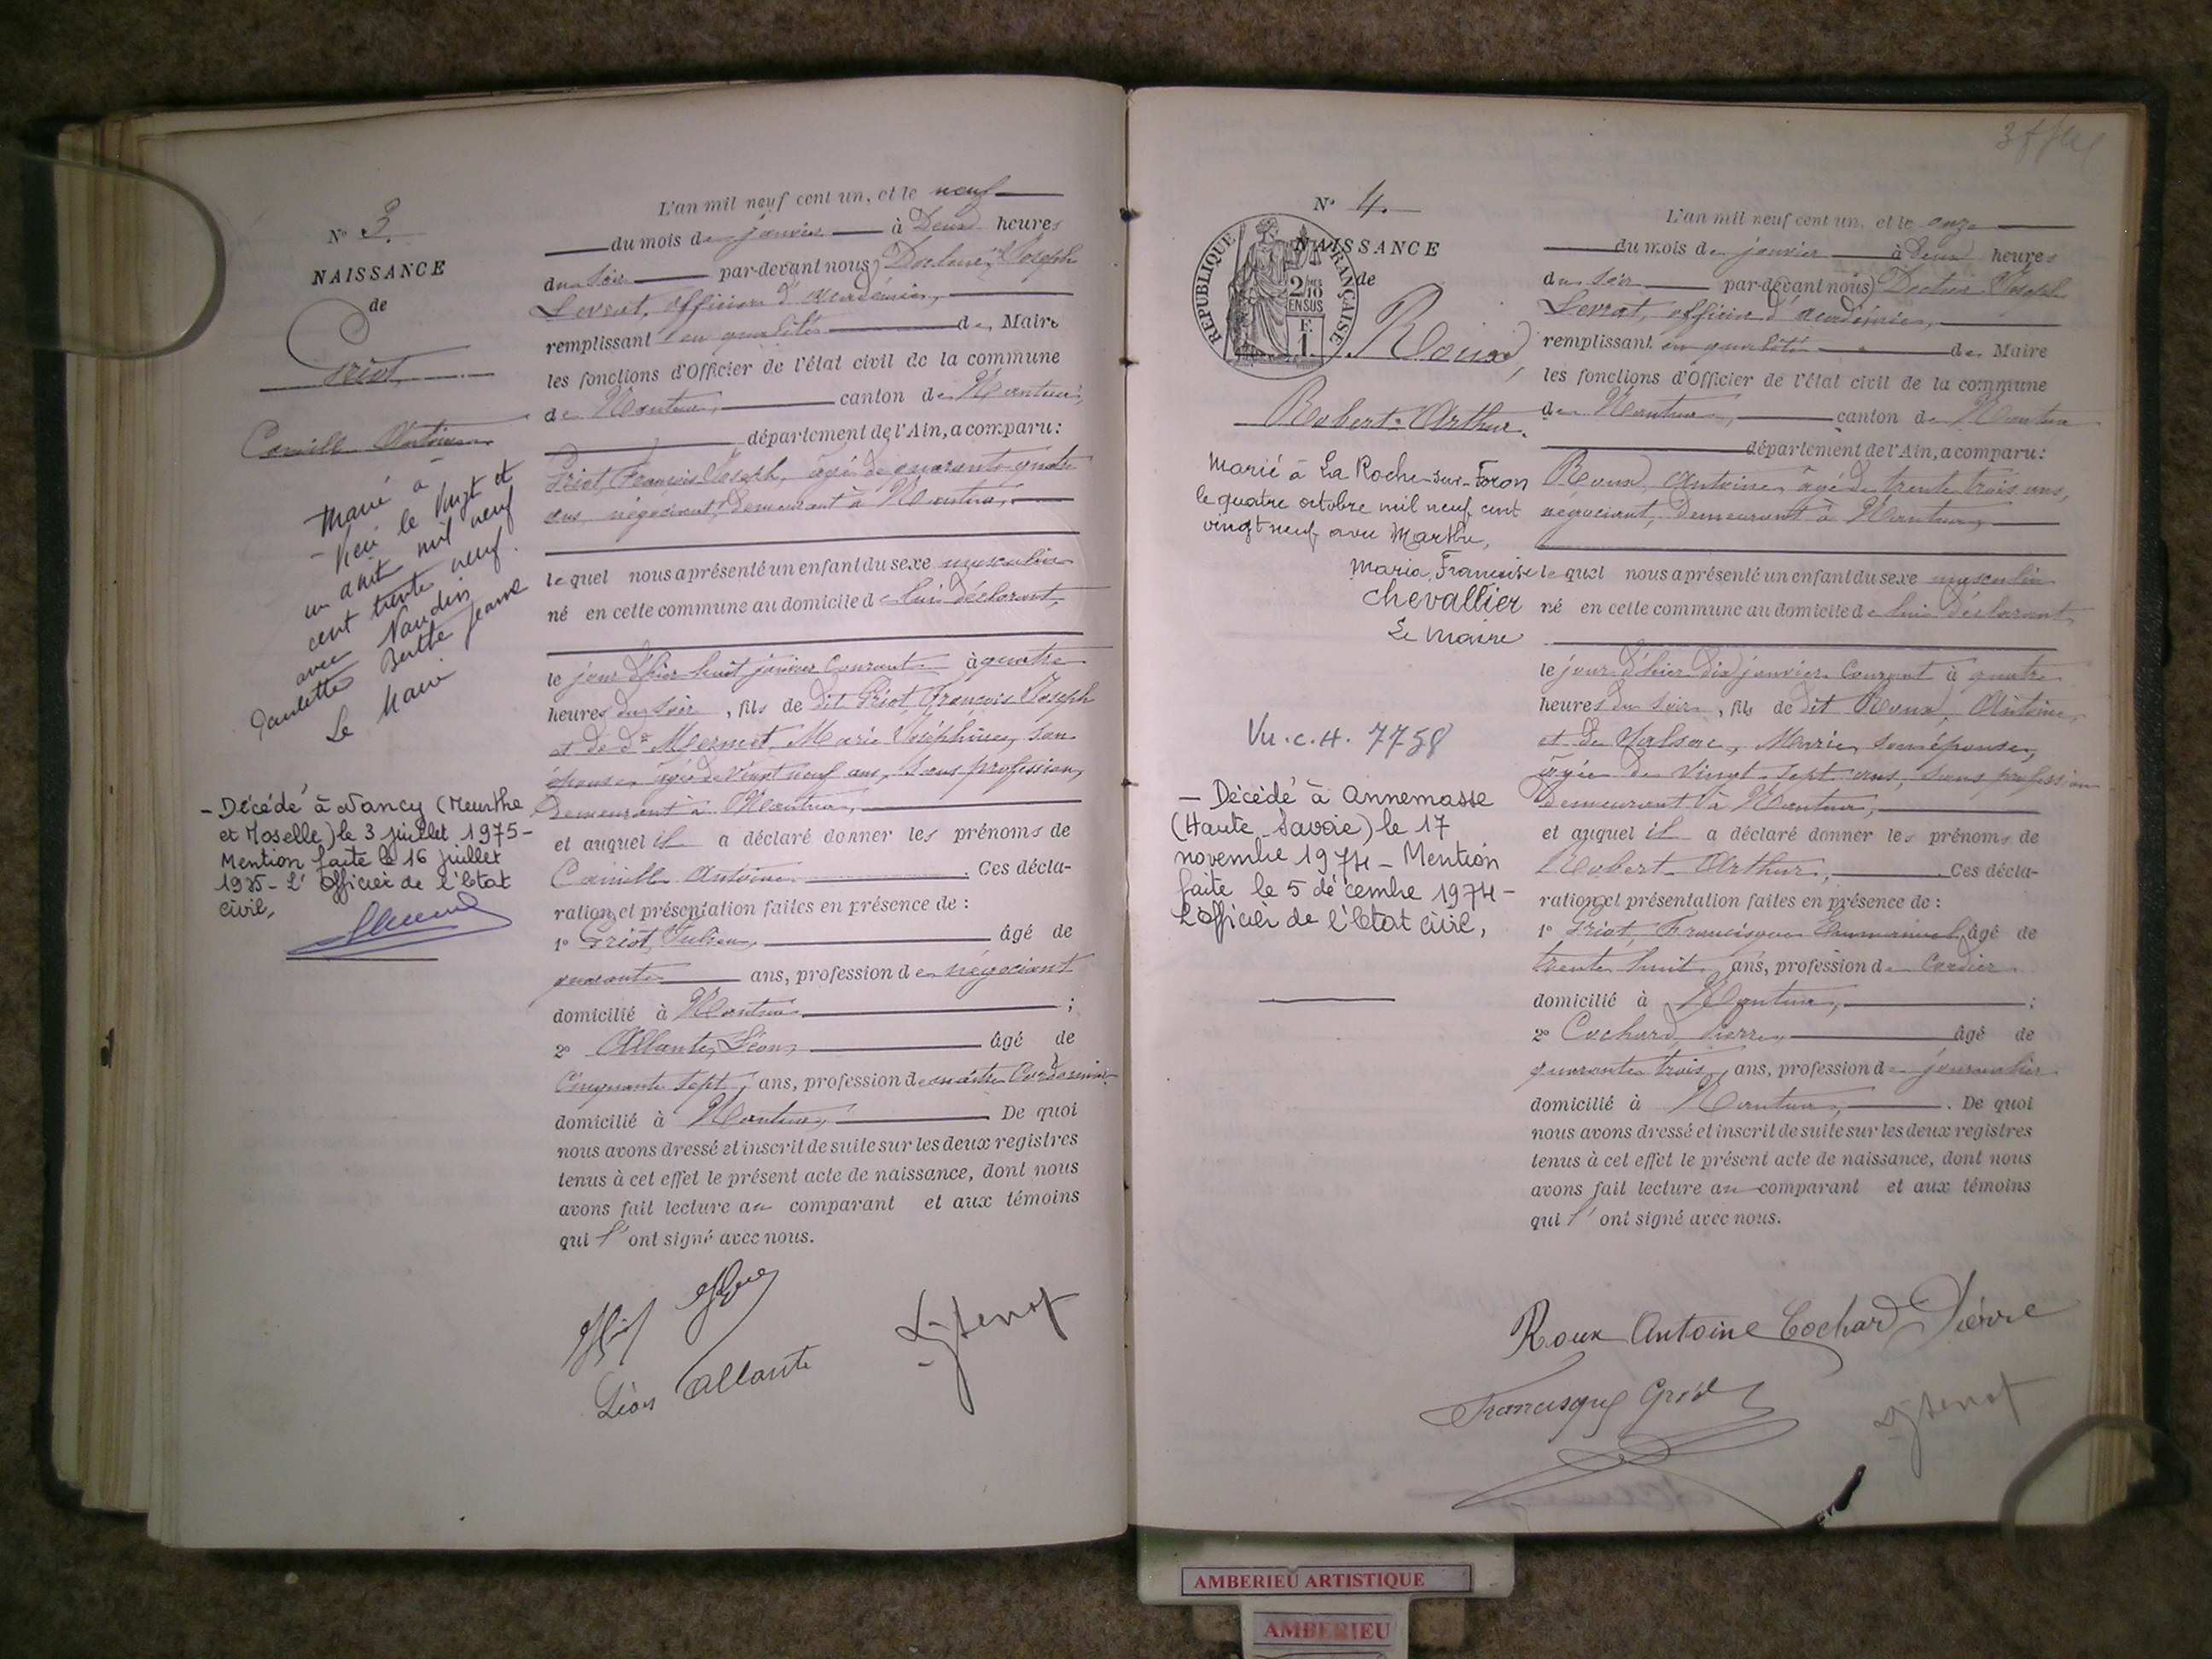 N° 3.
NAISSANCE
de
Griot
Camille Antoine
Marié à
Vieu le vingt et
un août mil neuf
cent trente neuf
avec Naudin
Paulette Berthe Jeanne
Le Maire
- Décédé à Nancy (Meurthe
et Moselle) le 3 juillet 1975 -
Mention faite le 16 juillet
1975 - L'Officier de l'Etat
civil,
L'an mil neuf cent un, et le neuf
du mois de janvier à Deux heures
du soir par-devant nous, Docteur, Joseph
Levrat, officier d'académie,
remplissant en qualité de Maire
les fonctions d'Officier de l'état civil de la commune
de Nantua, canton de Nantua,
département de l'Ain, a comparu:
Griot, François Joseph, âgé de quarante quatre
ans, négociant, demeurant à Nantua,
lequel nous a présenté un enfant du sexe masculin
né en cette commune au domicile de lui déclarant,
le jour d'hier huit janvier courant à quatre
heures du soir, fils de dit Griot, François Joseph
et de de Mermet, Marie Joséphine, son
épouse, âgée de vingt neuf ans, sans profession,
demeurant à Nantua,
et auquel il a déclaré donner les prénoms de
Camille Antoine. Ces décla-
ration et présentation faites en présence de :
1° Griot, Julien, âgé de
quarante ans, profession de négociant
domicilié à Nantua ;
2° Allante, Léon, âgé de
cinquante sept ans, profession de maître cordonnier
domicilié à Nantua, De quoi
nous avons dressé et inscrit de suite sur les deux registres
tenus à cet effet le présent acte de naissance, dont nous
avons fait lecture au comparant et aux témoins
qui l'ont signé avec nous.
Léon Allante
N° 4.
NAISSANCE
de
REPUBLIQUE FRANÇAISE
2/10
EN SUS
F.
1.
Roux,
Robert Arthur.
Marié à La Roche-sur-Foron
le quatre octobre mil neuf cent
vingt neuf avec Marthe,
Maria, Françoise
Chevallier
Le Maire
Vu. c. H. 7758
- Décédé à Annemasse
(Haute Savoie) le 17
novembre 1974 - Mention
faite le 5 décembre 1974 -
L'Officier de l'Etat civil,
L'an mil neuf cent un, et le onze
du mois de janvier à Deux heures
du soir par-devant nous, Docteur Joseph
Levrat, officier d'académie,
remplissant en qualité de Maire
les fonctions d'Officier de l'état civil de la commune
de Nantua, canton de Nantua
département de l'Ain, a comparu:
Roux, Antoine, âgé de trente trois ans,
négociant, demeurant à Nantua,
lequel nous a présenté un enfant du sexe masculin
né en cette commune au domicile de lui déclarant
le jour d'hier dix janvier courant à quatre
heures du soir, fils de dit Roux, Antoine,
et de Valsac, Marie, son épouse,
âgée de vingt sept ans, sans profession
demeurant à Nantua,
et auquel il a déclaré donner les prénoms de
Robert Arthur, Ces décla-
ration et présentation faites en présence de :
1° Griot, Francisque Emmanuel, âgé de
trente huit ans, profession de Cordier
domicilié à Nantua, ;
2° Cochard, Pierre, âgé de
quarante trois, ans, profession de journalier
domicilié à Nantua, . De quoi
nous avons dressé et inscrit de suite sur les deux registres
tenus à cet effet le présent acte de naissance, dont nous
avons fait lecture au comparant et aux témoins
qui l'ont signé avec nous.
Roux Antoine Cochard Pierre
Francisque Griot
AMBERIEU ARTISTIQUE
AMBERIEU